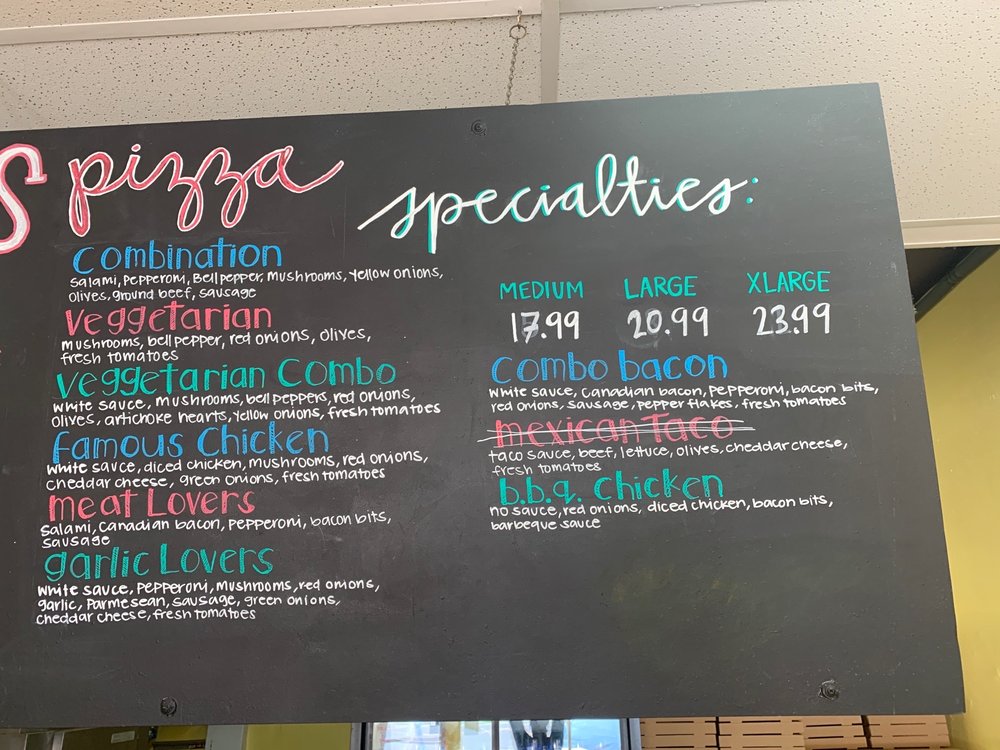 S pizza
specialties:
Combination
Salami, Pepperoni, Bell pepper, Mushrooms, Yellow onions,
olives, ground beef, sausage
Veggetarian
mushrooms, bell pepper, red onions, olives,
fresh tomatoes
Veggetarian Combo
White sauce, mushrooms, bell peppers, red onions,
olives, artichoke hearts, yellow onions, fresh tomatoes
Famous Chicken
White sauce, diced chicken, mushrooms, red onions,
cheddar cheese, green onions, fresh tomatoes
Meat Lovers
Salami, Canadian bacon, Pepperoni, bacon bits,
sausage
garlic Lovers
White sauce, Pepperoni, Mushrooms, red onions,
garlic, Parmesean, sausage, green onions,
cheddar cheese, fresh tomatoes
MEDIUM LARGE XLARGE
17.99 20.99 23.99
Combo bacon
White sauce, Canadian bacon, Pepperoni, bacon bits,
red onions, sausage, pepper flakes, fresh tomatoes
mexican Taco
taco sauce, beef, lettuce, olives, cheddar cheese,
fresh tomatoes
b.b.q. Chicken
no sauce, red onions, diced chicken, bacon bits,
barbeque sauce